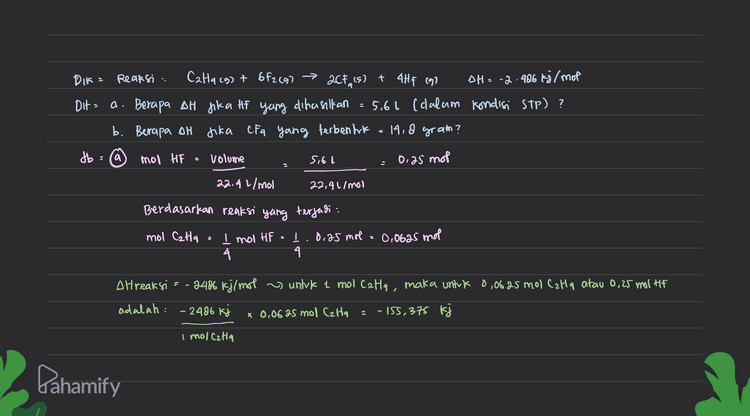 Dik = Reaksi : C2H4 (g) + 6F2 (g) → 2CF4 (s) + 4HF (g) ΔH = -2.486 kJ/mol
Dit = a. Berapa ΔH jika HF yang dihasilkan = 5,6 L (dalam kondisi STP) ?
b. Berapa ΔH jika CF4 yang terbentuk = 14,8 gram?
Jb = (a) mol HF = Volume = 5,6 L = 0,25 mol
22,4 L/mol 22,4 L/mol
Berdasarkan reaksi yang terjadi :
mol C2H4 = 1/4 mol HF = 1/4 . 0,25 mol = 0,0625 mol
ΔHreaksi = -2486 kJ/mol ~> untuk 1 mol C2H4, maka untuk 0,0625 mol C2H4 atau 0,25 mol HF
adalah : -2486 kJ x 0,0625 mol C2H4 = -155,375 kJ
1 mol C2H4
Pahamify